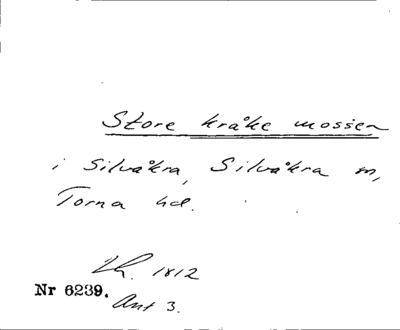 Store kråke mossen
i Silvåkra, Silvåkra m,
Torna hd.
Lh. 1812
Nr 6239.
Ant 3.